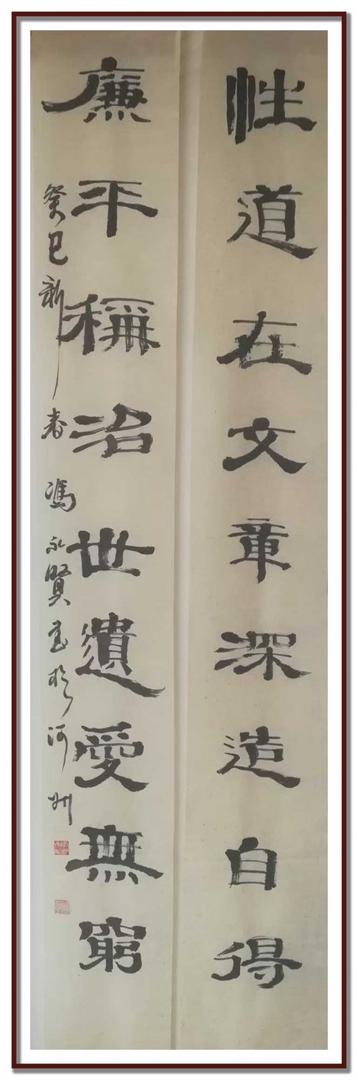 性道在文章深造自得
廉平稱治世遺愛無窮
癸巳新春馮永賢書於河州